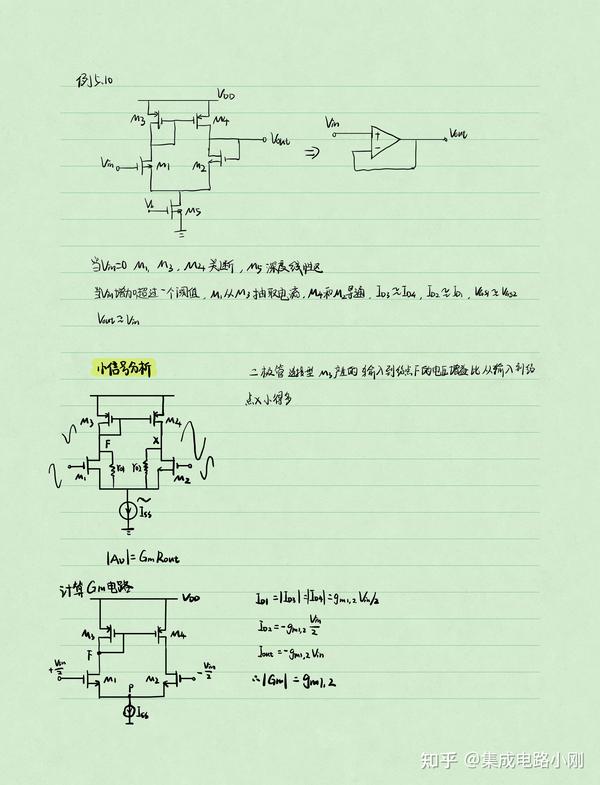 例5.10
VDD
M3
M4
Vout
Vin
M1
M2
⇒
Vin
+
-
Vout
Vb
M5
当Vin=0 M1, M3, M4关断, M5深度线性区
当Vin增加超过一个阈值, M1从M3抽取电流, M4和M2导通, ID3≈ID4, ID2≈ID1, VGS1≈VGS2
Vout≈Vin
小信号分析
二极管连接型 M3产生的输入到结点F的电压增益比从输入到结
点X小得多
M3
M4
F
X
M1
ro1
ro2
M2
ISS
|Av|=GmRout
计算Gm电路
VDD
M3
M4
F
+Vin/2
M1
M2
-Vin/2
P
ISS
ID1=|ID3|=|ID4|=gm1,2Vin/2
ID2=-gm1,2 Vin/2
Iout=-gm1,2Vin
∴|Gm|=gm1,2
知乎 @集成电路小刚